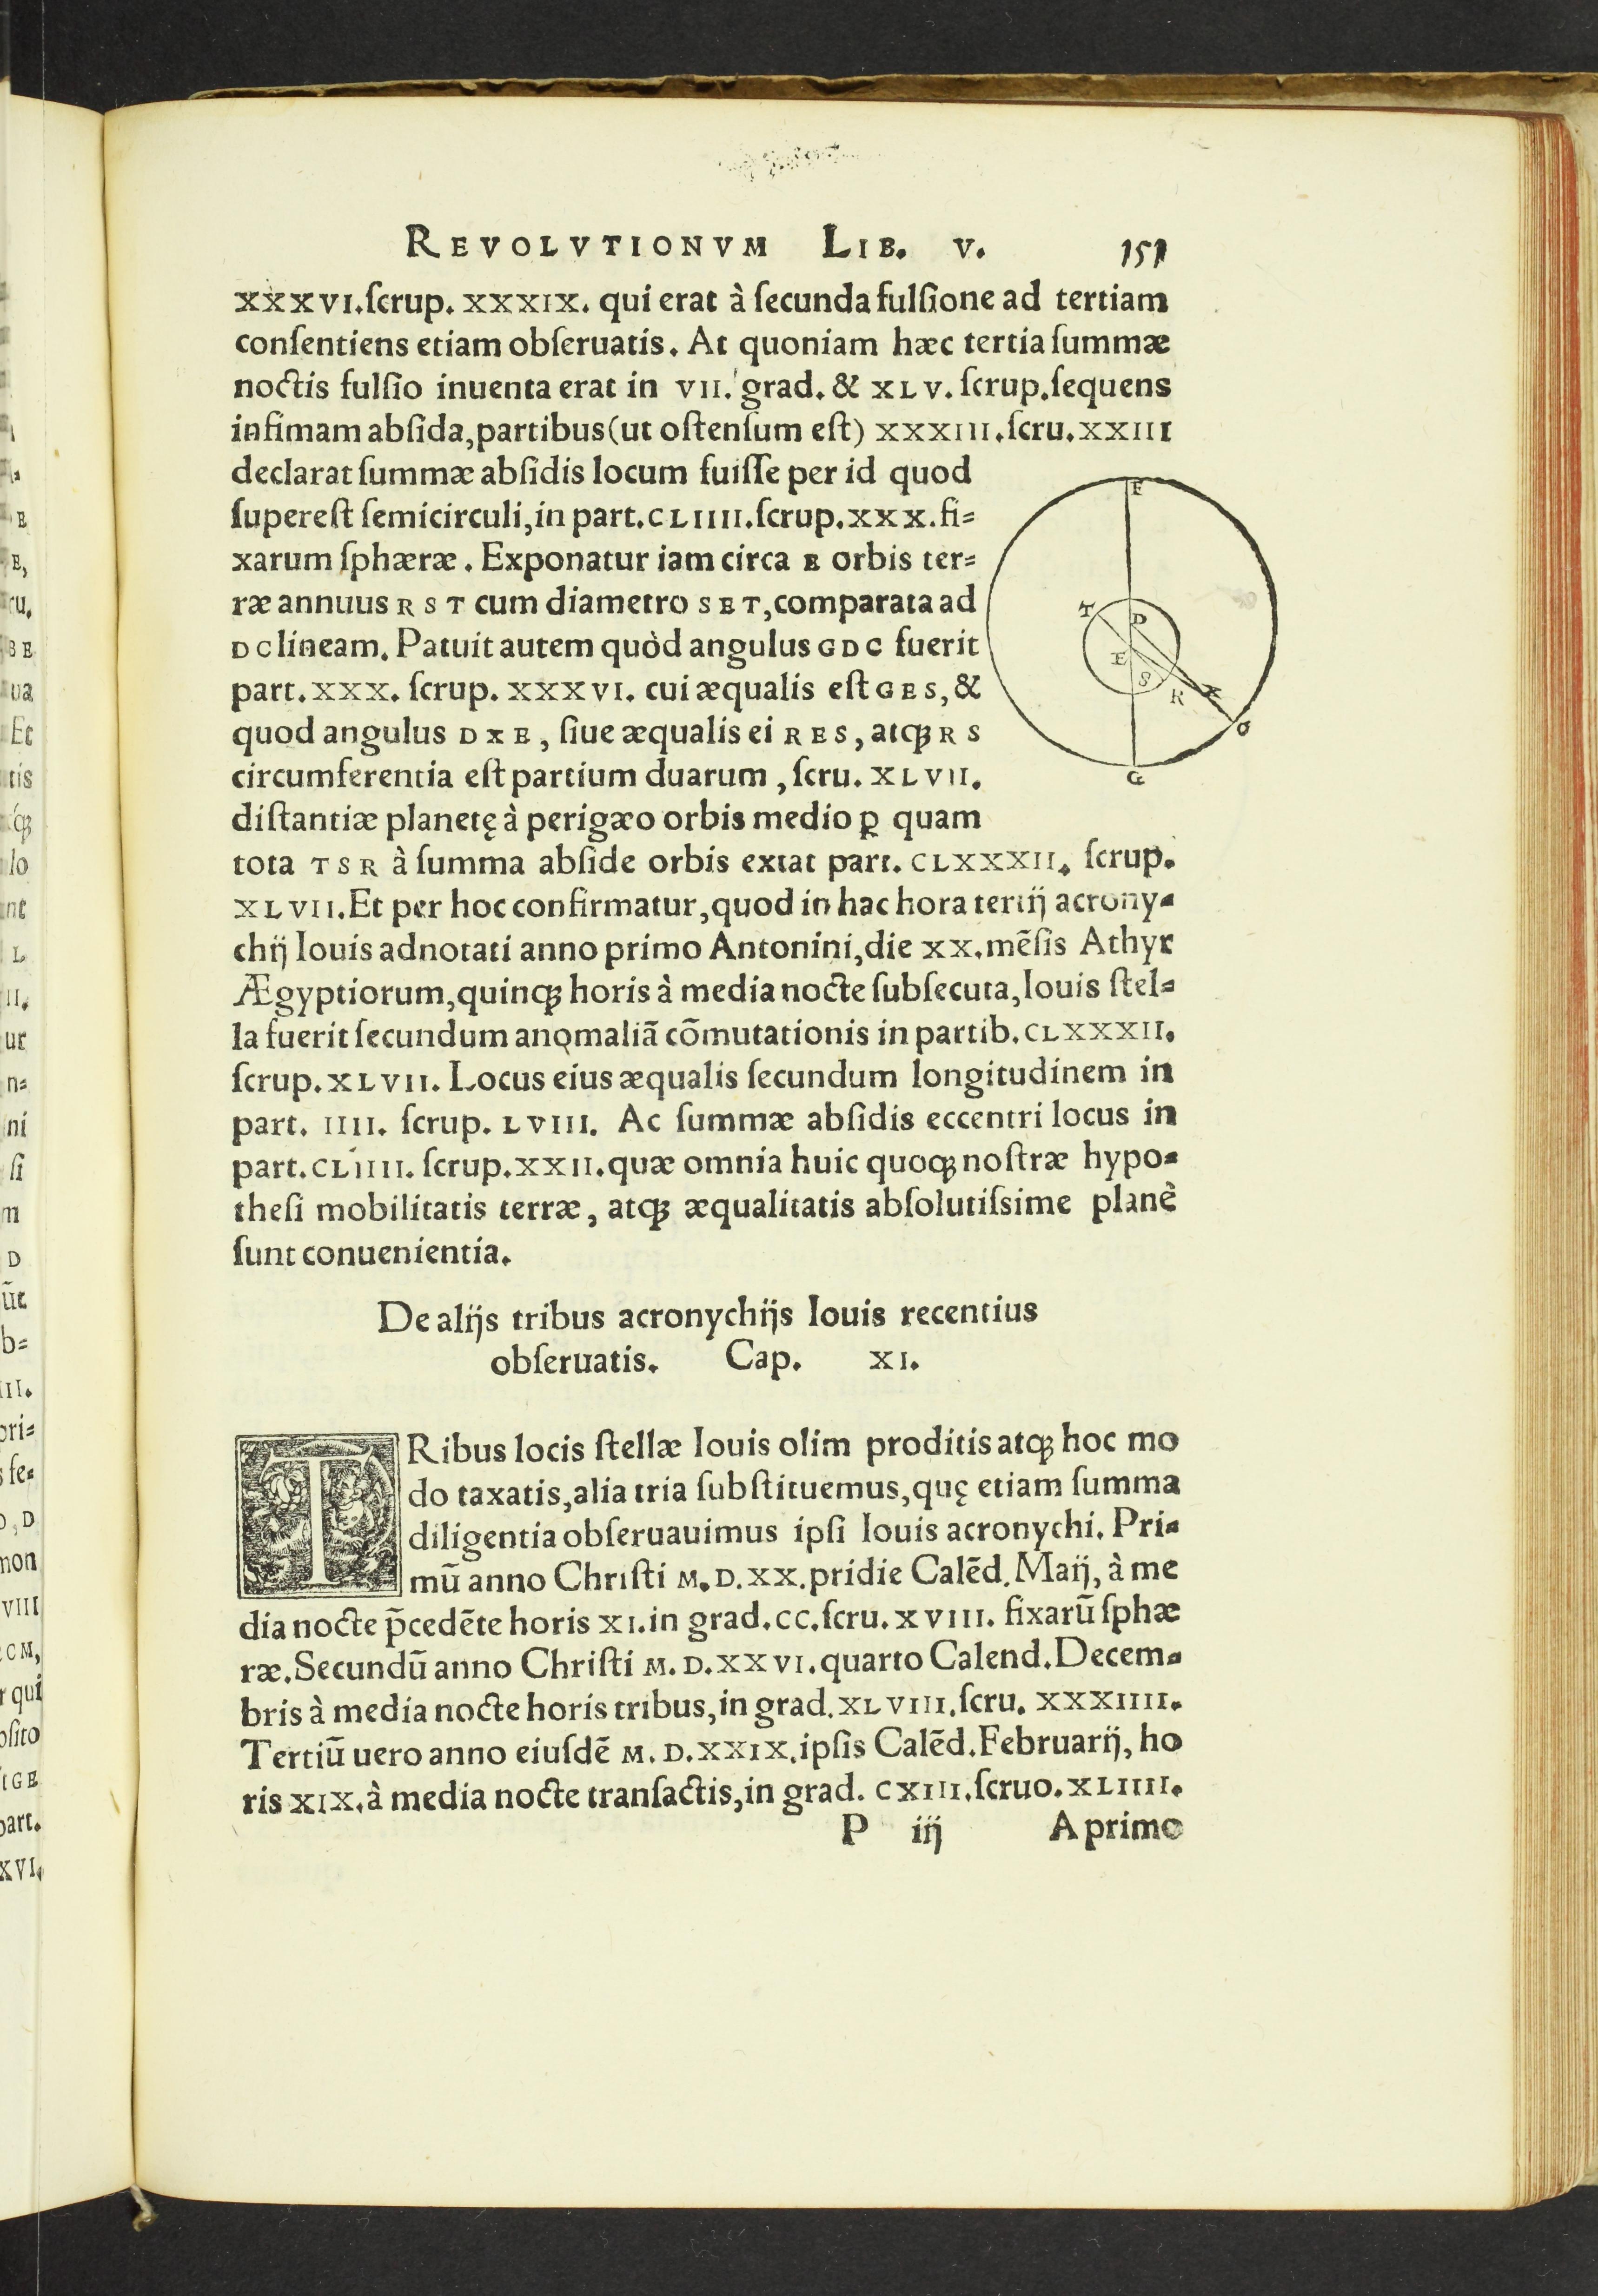 REVOLVTIONVM LIB. V. 151
XXXVI. ſcrup. XXXIX. qui erat à ſecunda fulſione ad tertiam
conſentiens etiam obſeruatis. At quoniam hæc tertia ſummæ
noctis fulſio inuenta erat in VII. grad. & XLV. ſcrup. ſequens
infimam abſida, partibus (ut oſtenſum eſt) XXXIII. ſcru. XXIII
declarat ſummæ abſidis locum fuiſſe per id quod
ſupereſt ſemicirculi, in part. CLIIII. ſcrup. XXX. fi=
xarum ſphæræ. Exponatur iam circa E orbis ter=
ræ annuus R S T cum diametro S E T, comparata ad
D C lineam. Patuit autem quòd angulus G D C fuerit
part. XXX. ſcrup. XXXVI. cui æqualis eſt G E S, &
quod angulus D X E, ſiue æqualis ei R E S, atqꝫ R S
circumferentia eſt partium duarum, ſcru. XLVII.
diſtantiæ planetę à perigæo orbis medio ꝑ quam
tota T S R à ſumma abſide orbis extat part. CLXXXII. ſcrup.
XLVII. Et per hoc confirmatur, quod in hac hora tertij acrony=
chij Iouis adnotati anno primo Antonini, die XX. mēſis Athyr
Ægyptiorum, quinqꝫ horis à media nocte ſubſecuta, Iouis ſtel=
la fuerit ſecundum anomaliā cōmutationis in partib. CLXXXII.
ſcrup. XLVII. Locus eius æqualis ſecundum longitudinem in
part. IIII. ſcrup. LVIII. Ac ſummæ abſidis eccentri locus in
part. CLIIII. ſcrup. XXII. quæ omnia huic quoqꝫ noſtræ hypo=
theſi mobilitatis terræ, atqꝫ æqualitatis abſolutiſsime planè
ſunt conuenientia.
F
T
D
E
S
R
X
O
G
De alijs tribus acronychijs Iouis recentius
obſeruatis. Cap. XI.
TRibus locis ſtellæ Iouis olim proditis atqꝫ hoc mo
do taxatis, alia tria ſubſtituemus, quę etiam ſumma
diligentia obſeruauimus ipſi Iouis acronychi. Pri=
mū anno Chriſti M. D. XX. pridie Calēd. Maij, à me
dia nocte p̄cedēte horis XI. in grad. CC. ſcru. XVIII. fixarū ſphæ
ræ. Secundū anno Chriſti M. D. XXVI. quarto Calend. Decem=
bris à media nocte horis tribus, in grad. XLVIII. ſcru. XXXIIII.
Tertiū uero anno eiuſdē M. D. XXIX. ipſis Calēd. Februarij, ho
ris XIX. à media nocte tranſactis, in grad. CXIII. ſcruo. XLIIII.
P iij A primo